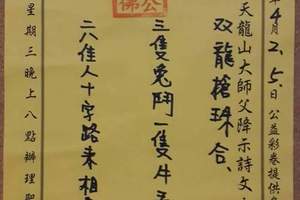 公
佛
年4月2.5.日公益彩卷提供
天龍山大師父降示詩文
双龍搶珠合、
三隻兔鬥一隻牛
二八佳人十字路来相
星期三晚上八點辦理聖